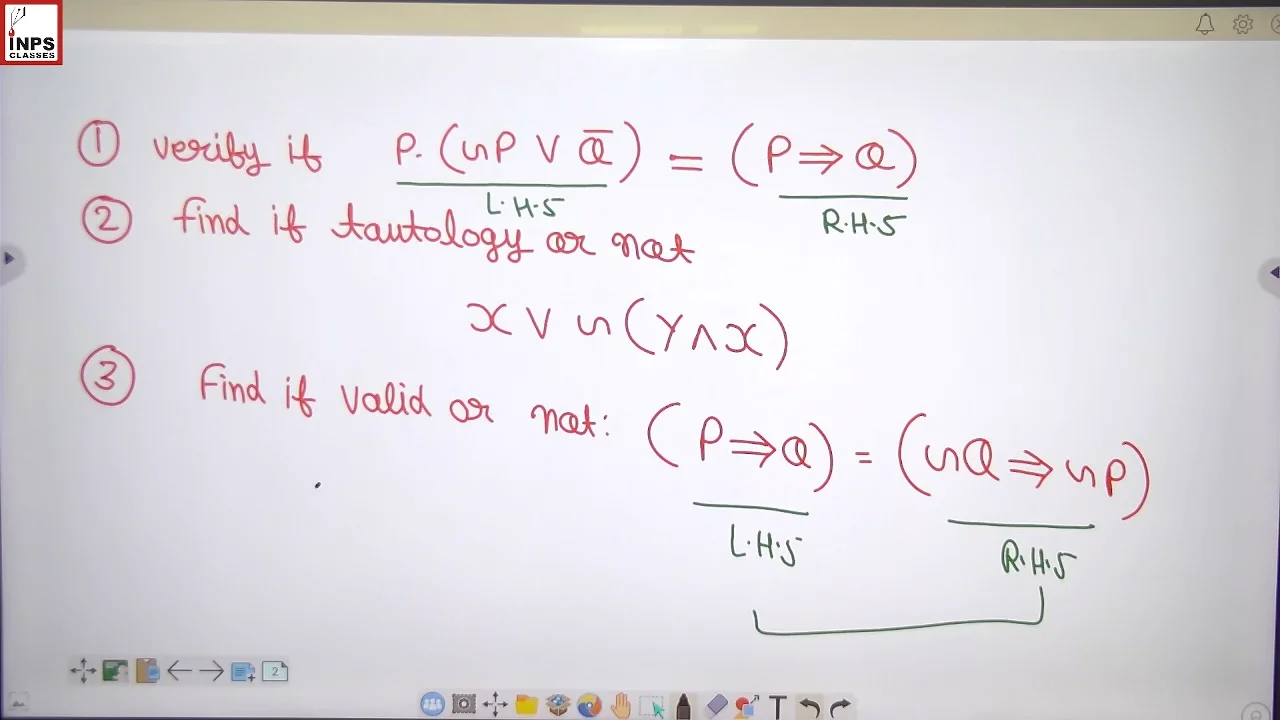 INPS
CLASSES
① verify if P. (~P ∨ Q̅) = (P ⇒ Q)
L.H.S R.H.S
② find if tautology or not
x ∨ ~(Y ∧ x)
③ Find if valid or not: (P ⇒ Q) = (~Q ⇒ ~P)
L.H.S R.H.S
2
T